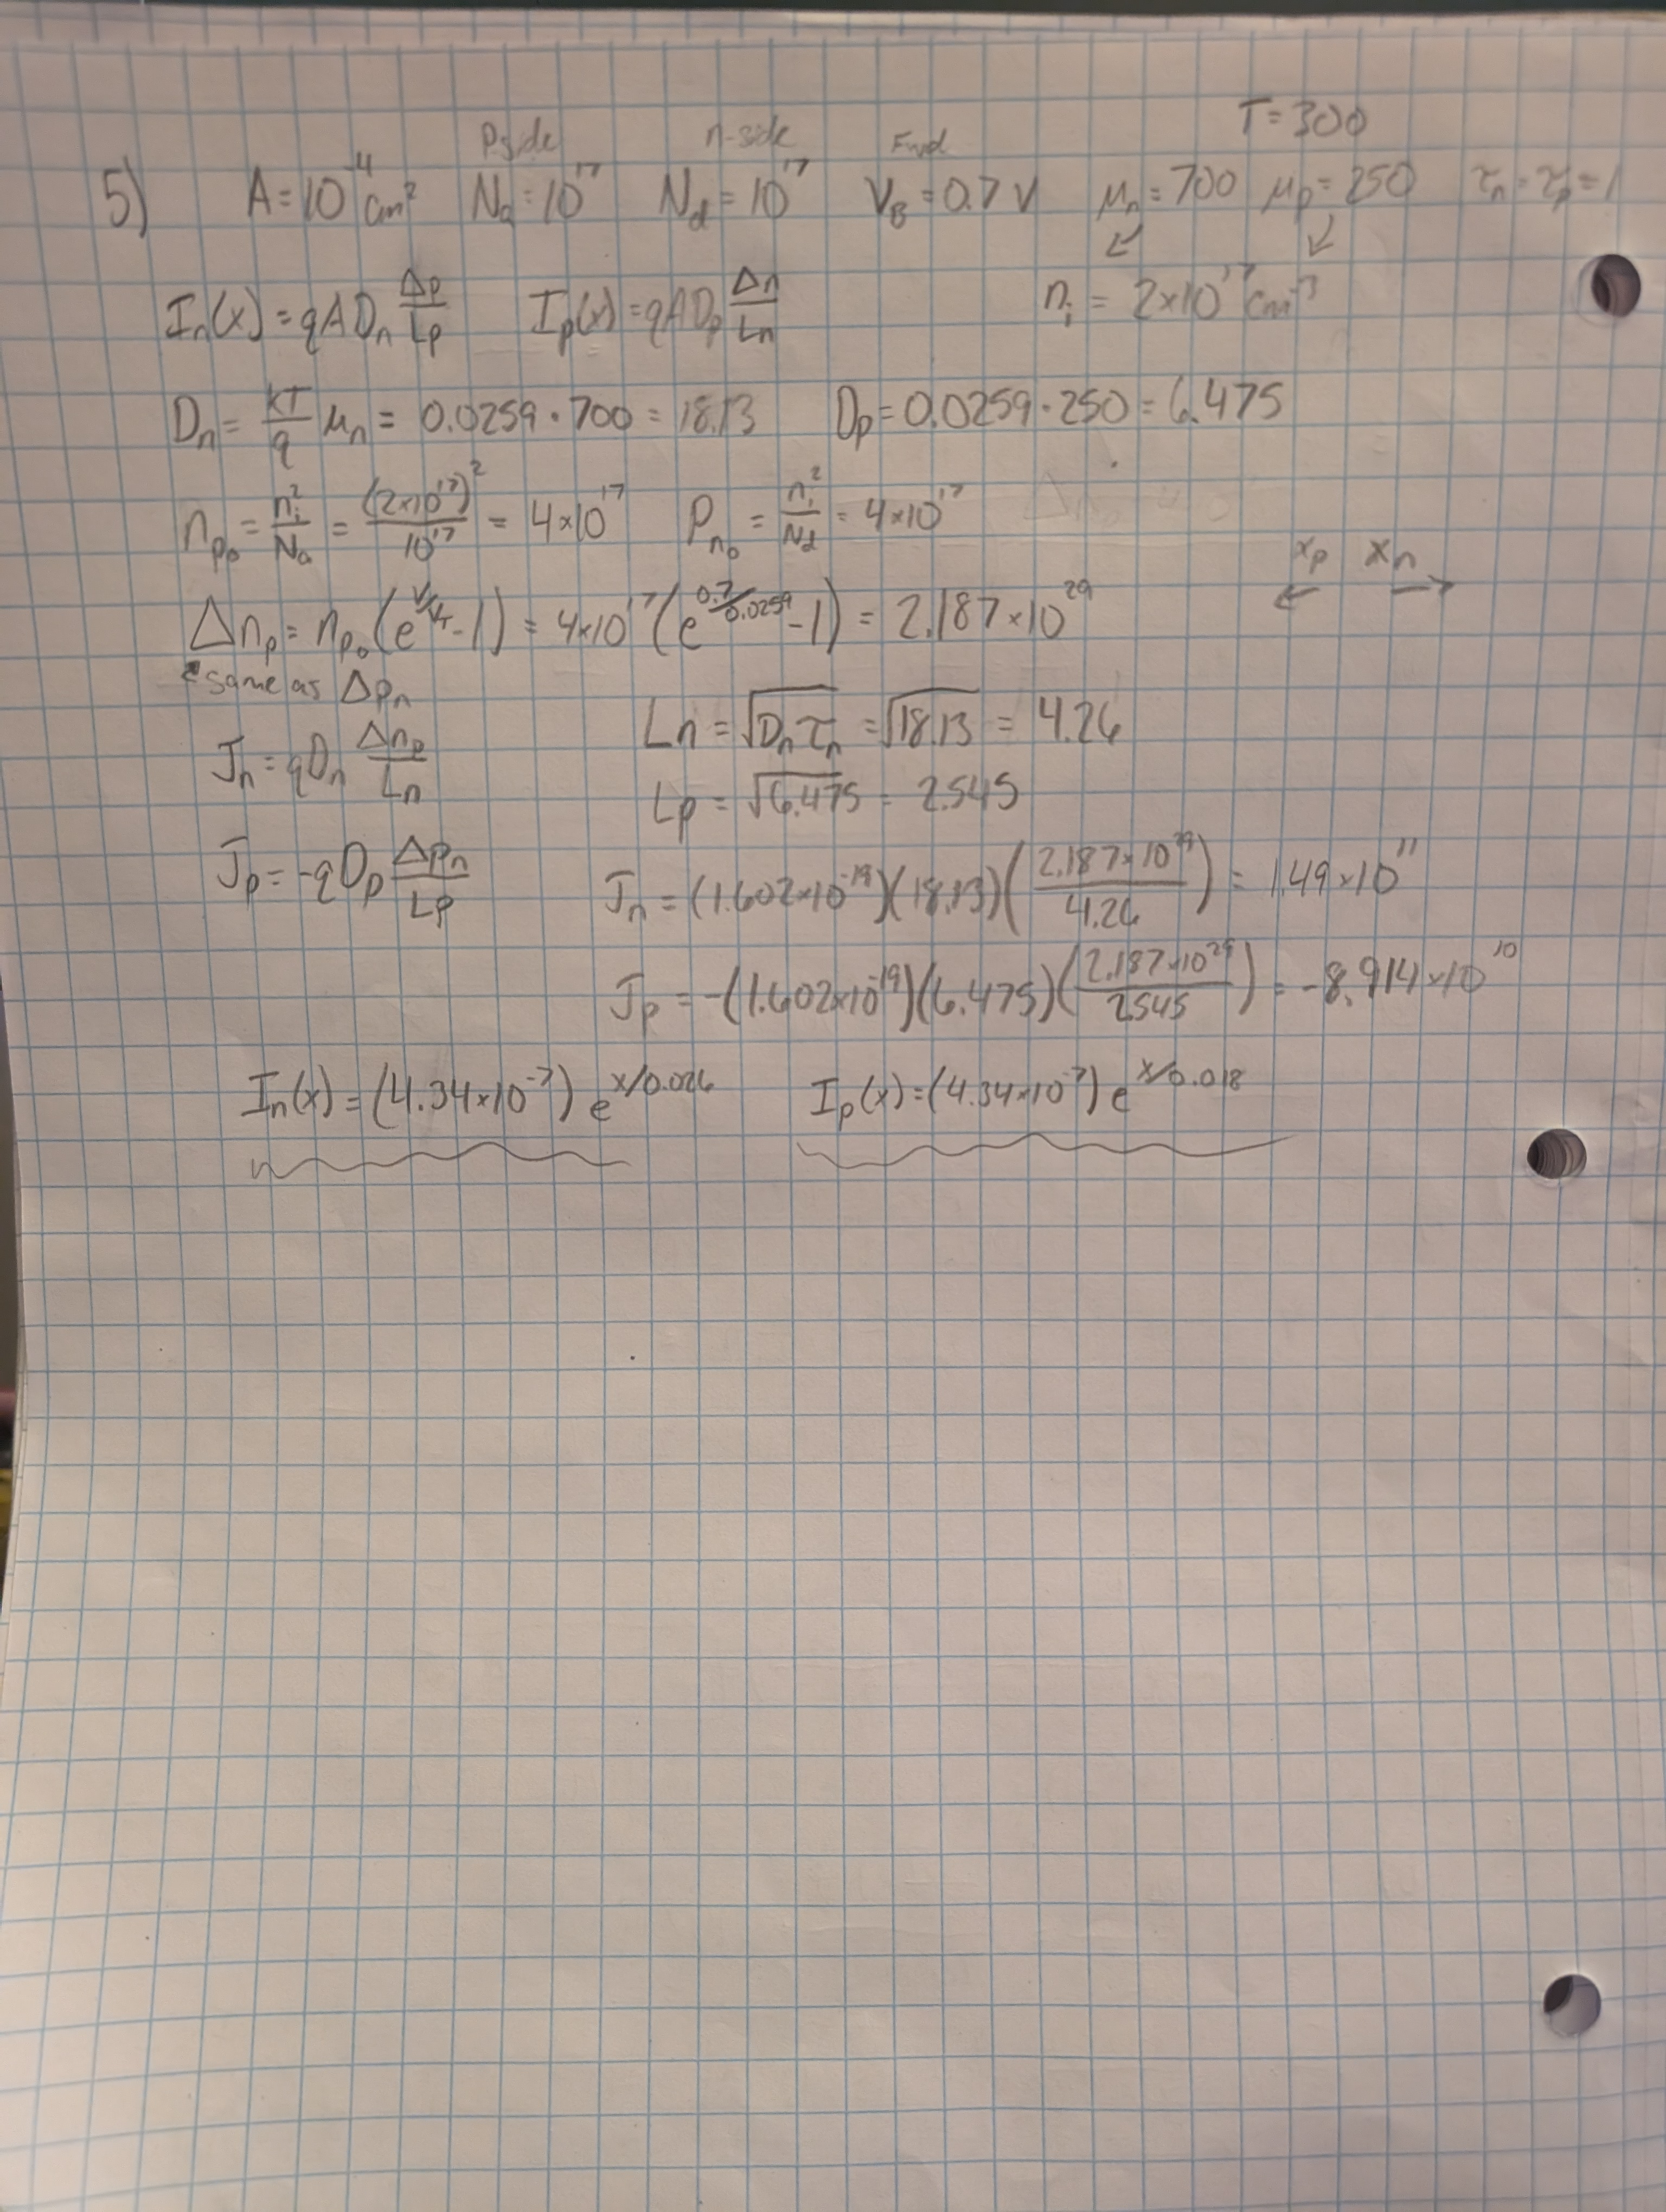 T=300
Pside n-side Fwd
5) A=10⁻⁴cm² Nₐ=10¹⁷ N_d=10¹⁷ V_B=0.7V μₙ=700 μₚ=250 τₙ=τₚ=1
↙ ↙
Iₙ(x)=qADₙ Δp/Lp Iₚ(x)=qADₚ Δn/Ln nᵢ = 2×10¹⁷cm⁻³
Dₙ= kT/q μₙ= 0.0259·700=18.13 Dp=0.0259·250=6.475
nₚ₀ = nᵢ²/Nₐ = (2×10¹⁷)²/10¹⁷ = 4×10¹⁷ Pₙ₀ = nᵢ²/N_d = 4×10¹⁷
xₚ xₙ
← →
Δnₚ= nₚ₀(e^(V/V_T)-1) = 4×10¹⁷(e^(0.7/0.0259)-1) = 2.187×10²⁹
same as Δpₙ
Ln=√(DₙTₙ) =√18.13 = 4.26
Jₙ=qDₙ Δnₚ/Lₙ
Lp=√6.475 = 2.545
Jₚ=-qDₚ Δpₙ/Lp
Jₙ=(1.602×10⁻¹⁹)(18.13)(2.187×10²⁹/4.26) = 1.49×10¹¹
Jₚ=-(1.602×10⁻¹⁹)(6.475)(2.187×10²⁹/2.545) = -8.914×10¹⁰
Iₙ(x)=(4.34×10⁻⁷)e^(x/0.026) Iₚ(x)=(4.34×10⁻⁷)e^(x/0.018)